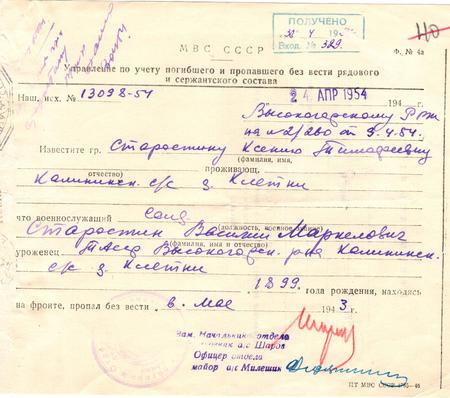 ПОЛУЧЕНО
Вход. № 329.
110
МВС СССР
Ф. № 4а
Управление по учету погибшего и пропавшего без вести рядового
и сержантского состава
Наш. исх. № 13098-54
24 АПР 1954 194 г.
Высокогорскому РВК
на №2/260 от 9.4.54.
Известите гр. Старостину Ксению Тимофеевну
(фамилия, имя,
отчество) проживающ.
Калининск. с/с д. Клетни
что военнослужащий солд.
(должность, военное звание)
Старостин Василий Маркелович
(фамилия, имя и отчество)
уроженец ТАССР Высокогорск. р-на Калининск.
с/с д. Клетни
1899 года рождения, находясь
на фронте, пропал без вести в мае 1943 г.
Зам. Начальника отдела
а/с Шаров
Офицер отдела
майор а/с Милешин
ПТ МВС СССР